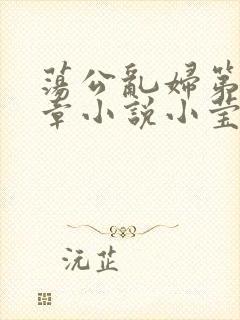 蕩公亂婦第
章小説小莹
沅芷